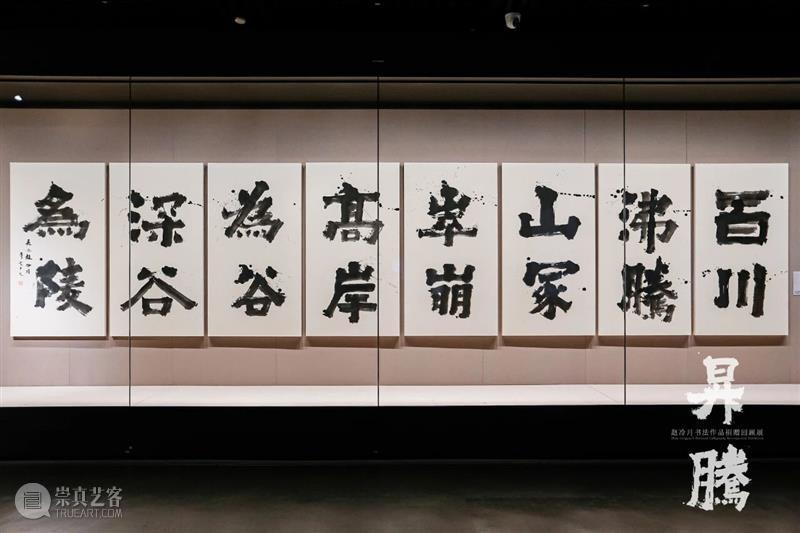 百川
沸騰
山冢
崒崩
髙岸
為谷
深谷
為陵
昇騰
赵冷月书法作品捐赠回顾展
崇真艺客
TRUEART.COM